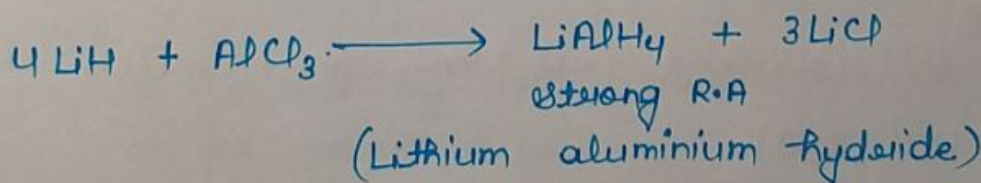 4 LiH + AlCl₃ ⟶ LiAlH₄ + 3LiCl
strong R.A
(Lithium aluminium hyderide)